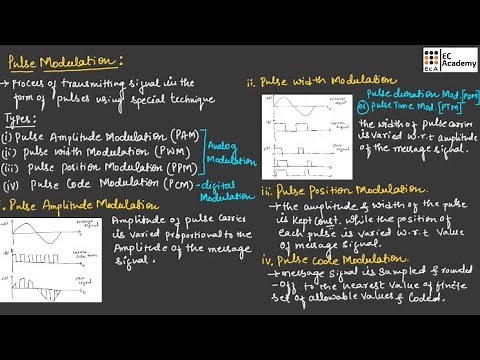 EC Academy
ECA
Pulse Modulation :
→ Process of transmitting signal in the
form of pulses using special technique
Types :
(i) Pulse Amplitude Modulation (PAM)
(ii) pulse width Modulation (PWM)
(iii) pulse position Modulation (PPM)
Analog
Modulation
(iv) Pulse Code Modulation (PCM) - digital
Modulation
i. Pulse Amplitude Modulation
Amplitude of pulse Carrier
is varied proportional to the
Amplitude of the message
signal.
ii. Pulse width Modulation
Pulse duration Mod. [PDM]
or Pulse Time Mod. [PTM]
the width of pulse carrier
is varied w.r.t amplitude
of the message signal.
iii. Pulse Position Modulation.
→ the amplitude & width of the pulse
is Kept Const. while the position of
each pulse is varied w.r.t value
of message signal.
iv. Pulse Code Modulation.
→ message signal is sampled & rounded
-off to the nearest value of finite
set of allowable values & Coded.